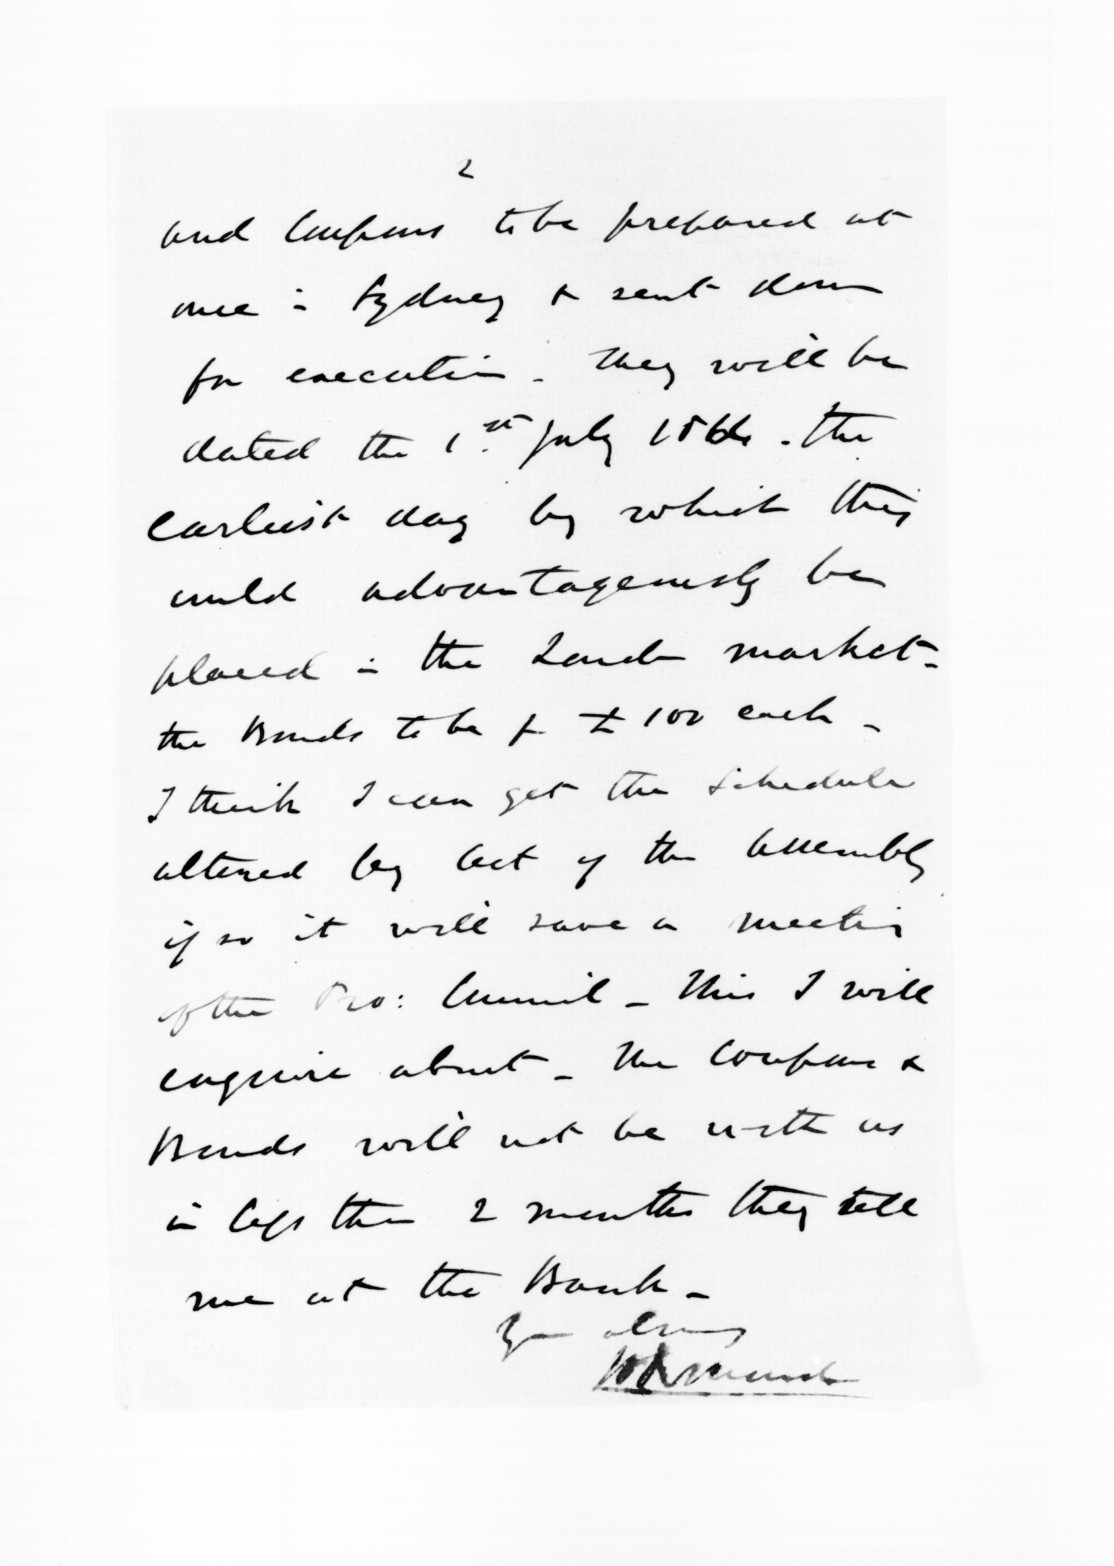 2
and Coupons to be prepared at
once in Sydney & sent down
for execution. They will be
dated the 1st July 1864. the
earliest day by which they
could advantageously be
placed in the market.
the Bonds to be for £100 each -
I think I can get the Schedule
altered by Act of the Assembly
if so it will save a meeting
of the Pro: Council - This I will
enquire about - The Coupons &
Bonds will not be with us
in less than 2 months they tell
me at the Bank -
Yrs always